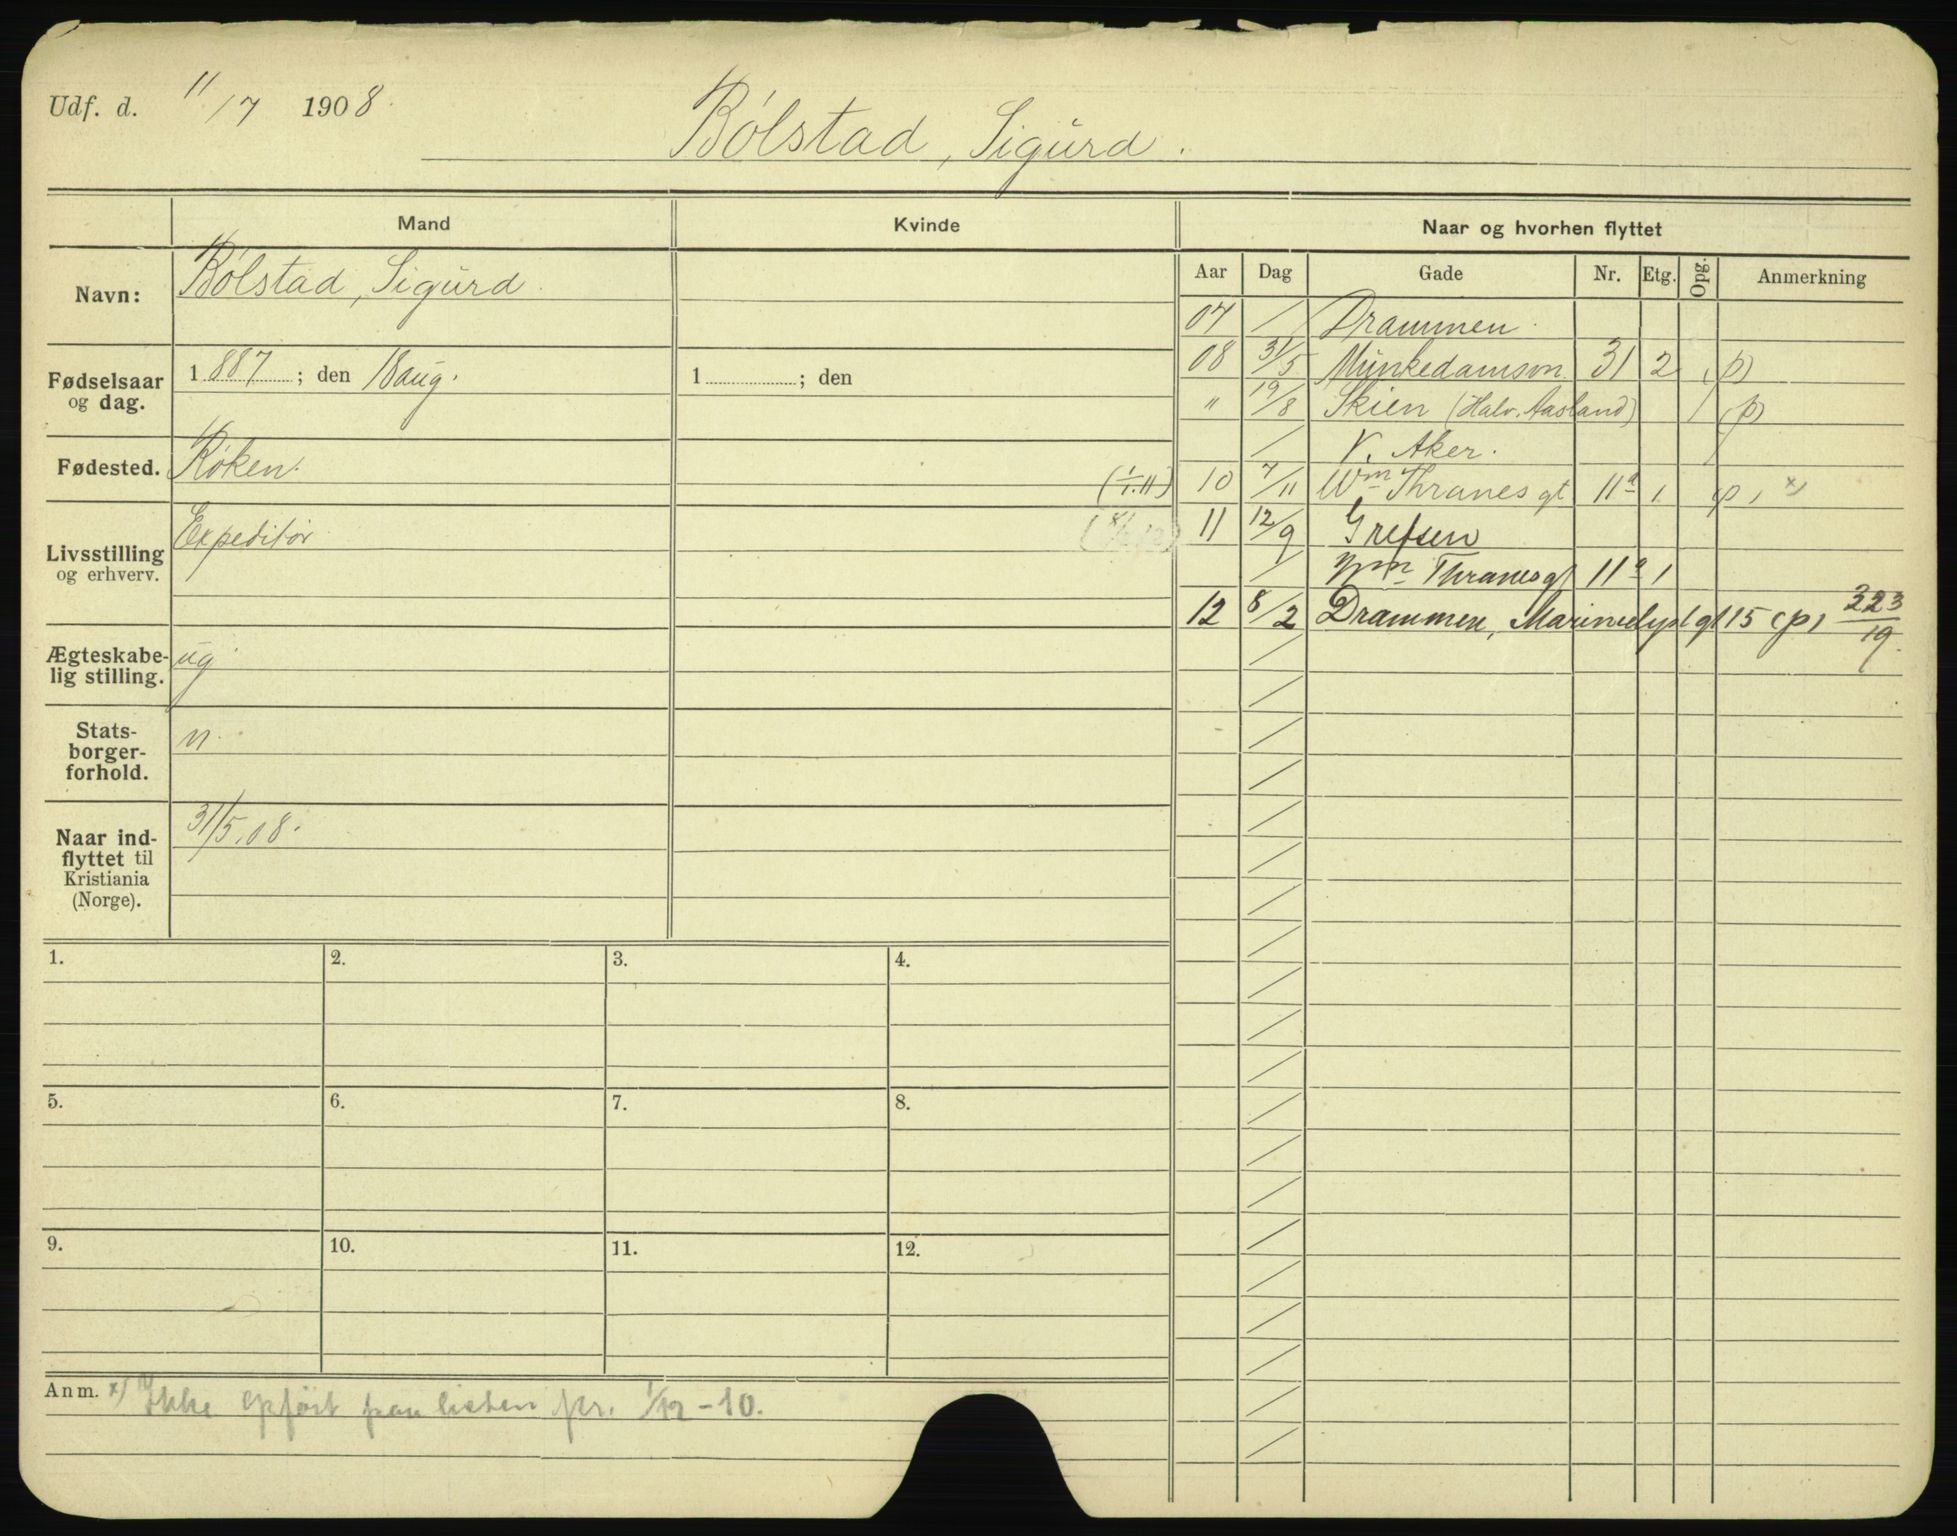 Udf. d. 11/7 1908.
Bólstad, Sigurd.
Mand Kvinde Naar og hvorhen flyttet
Aar Dag Gade Nr. Etg. Opg. Anmerkning
Navn: Bólstad, Sigurd.
Fødselsaar og dag. 1887; den 18 aug. 1 ; den
Fødested. Róken.
Livsstilling og erhverv. Expeditór
Ægteskabelig stilling. ug.
Statsborgerforhold. n.
Naar indflyttet til Kristiania (Norge). 31/5.08.
07 / Drammen.
08 31/5 Munkedamsvn. 31 2 (p)
" 19/8 Skien (Halv. Aasland) (p)
/ V. Aker.
(1/1.11) 10 7/11 Wm Thranes gt 11a 1 (p) x)
11 12/9 Grefsen
/ Wm Thranes gt 11a 1
12 8/2 Drammen, Marinelyst gt 15 (p) 223/19.
1. 2. 3. 4.
5. 6. 7. 8.
9. 10. 11. 12.
Anm. x) Ikke opført paa listen pr. 1/12-10.